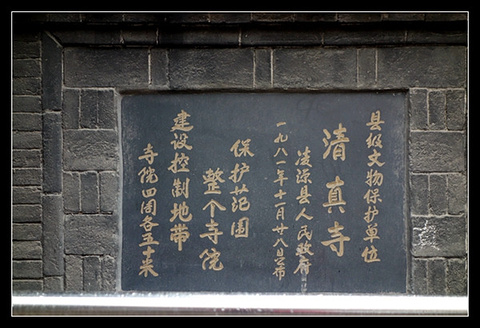 县级文物保护单位
清真寺
凌源县人民政府
一九八一年十一月廿八日布
保护范围
整个寺院
建设控制地带
寺院四周各五十米